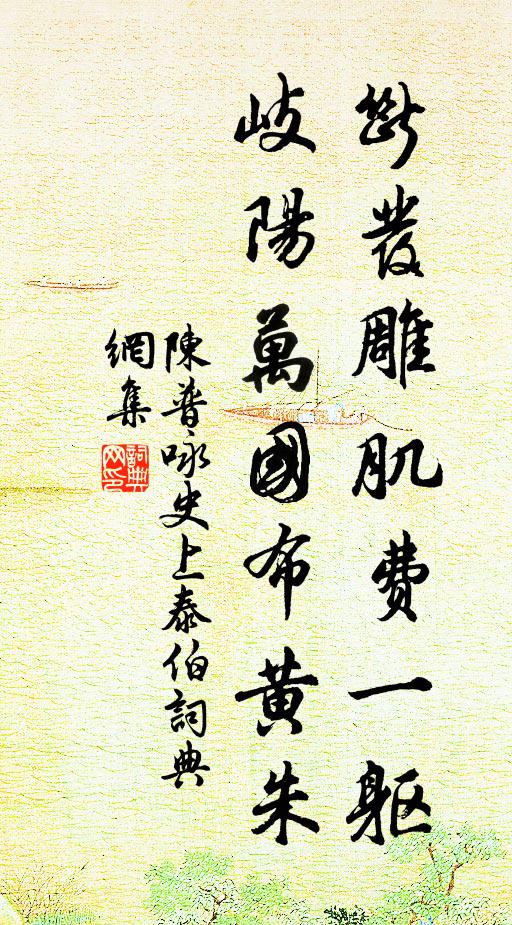 斷髮雕肌費一軀
岐陽萬國布黃朱
陳普咏史上泰伯詞典
網集
詞典網印